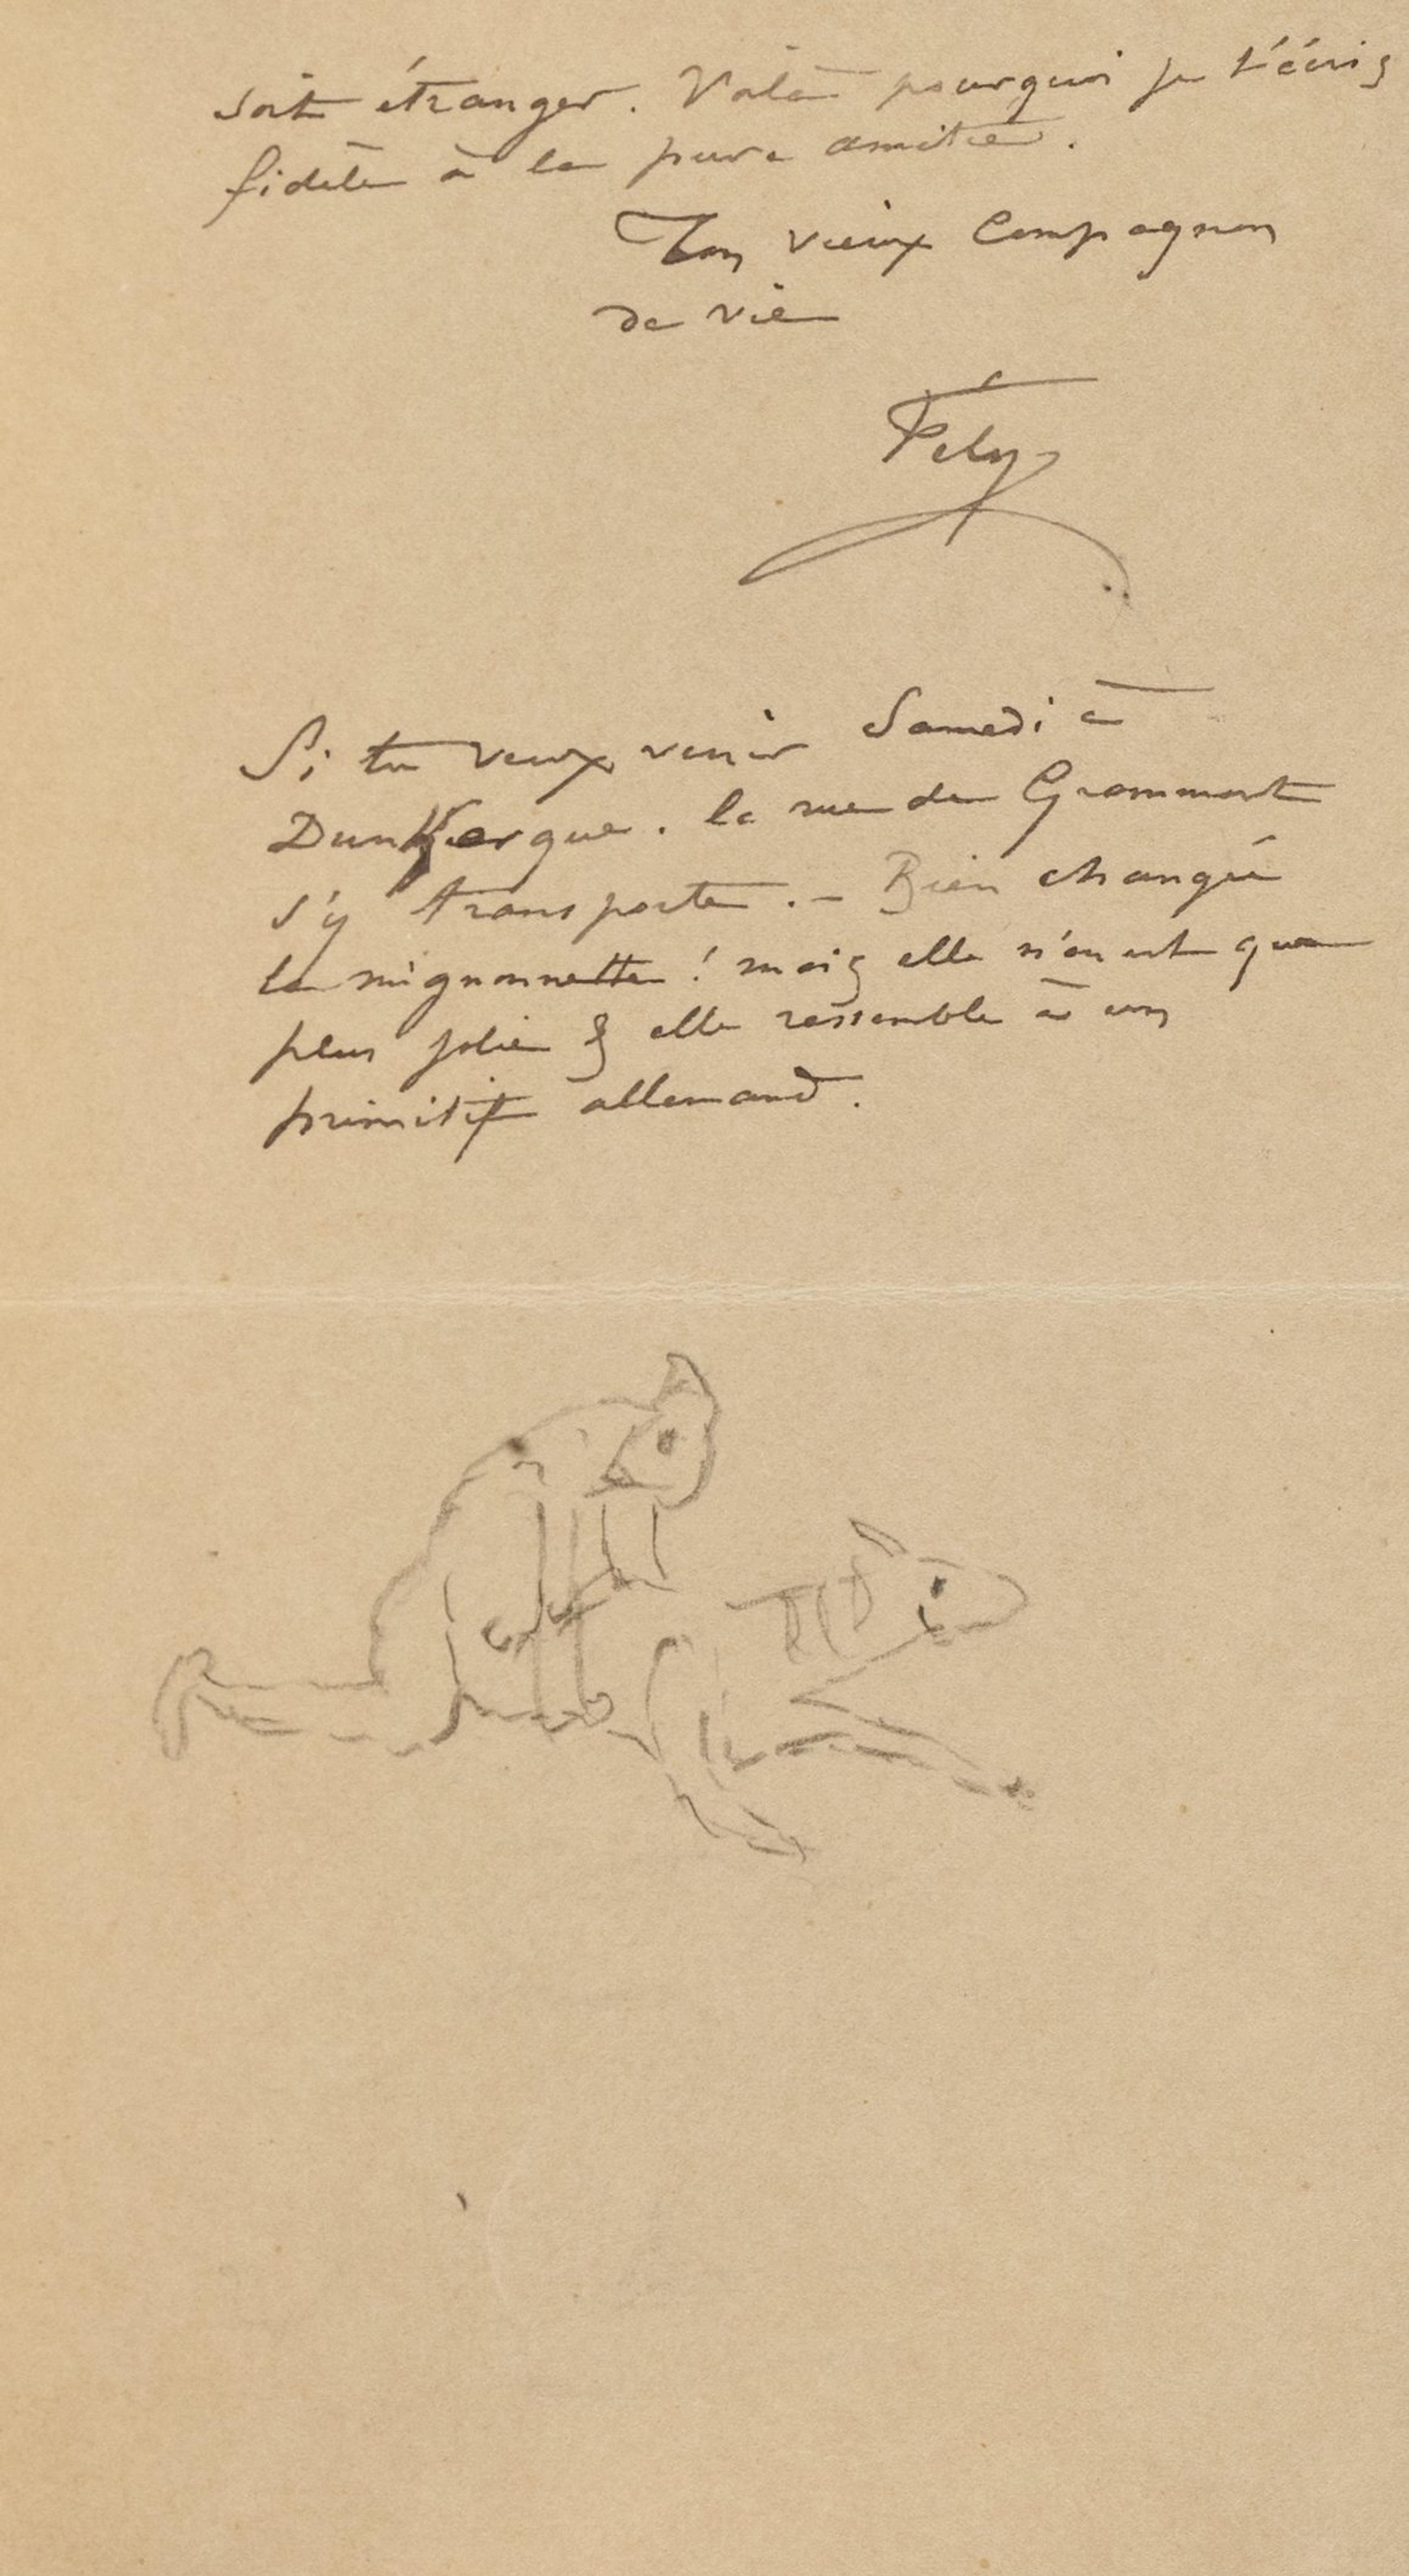 soit étranger. Voilà pourquoi je t'écris
fidèle à la pure amitié.
Ton vieux Compagnon
de vie
Fély
Si tu veux venir Samedi à
Dunkerque. la rue de Grammont
s'y transporte. – Bien changée
la mignonnette ! mais elle n'en est que
plus jolie & elle ressemble à un
primitif allemand.